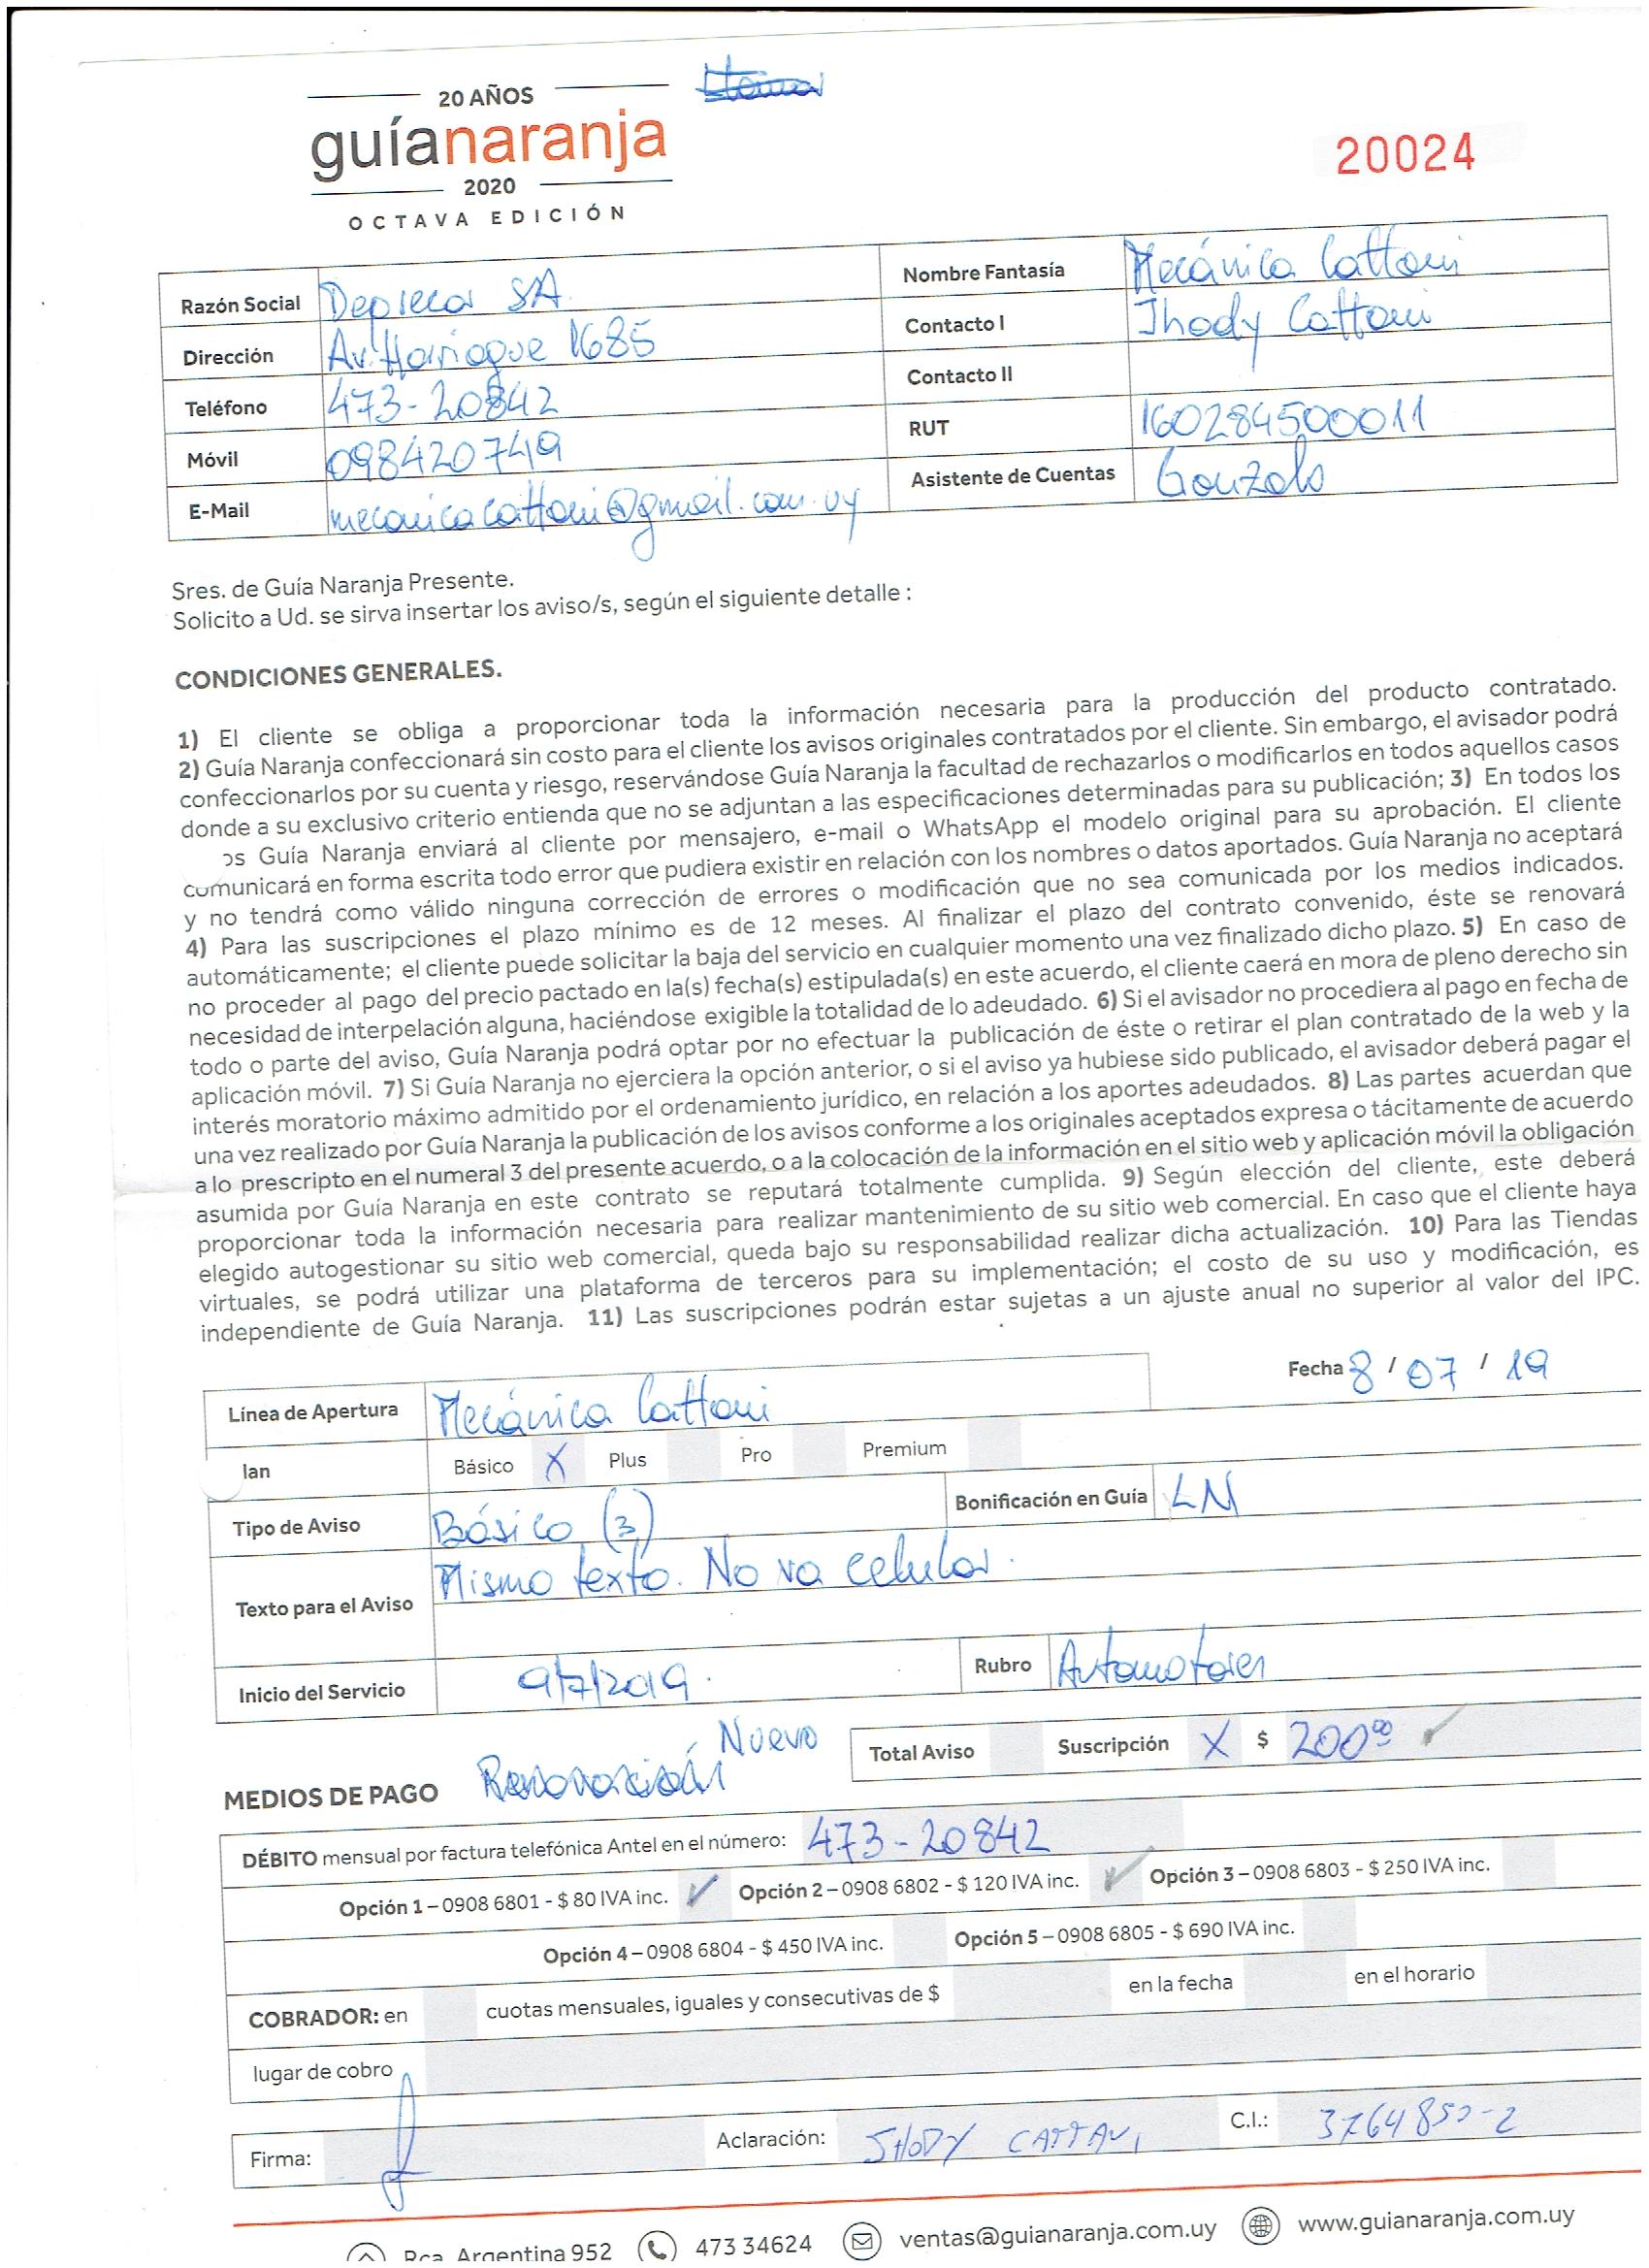 20 AÑOS
guíanaranja
2020
OCTAVA EDICIÓN
20024
Razón Social Depreca SA. Nombre Fantasía Mecánica Cattoni
Dirección Av. Harriague 1685 Contacto I Jhody Cattoni
Teléfono 473-20842 Contacto II
Móvil 098420749 RUT 160284500011
E-Mail mecanicacattoni@gmail.com.uy Asistente de Cuentas Gonzalo
Sres. de Guía Naranja Presente.
Solicito a Ud. se sirva insertar los aviso/s, según el siguiente detalle :
CONDICIONES GENERALES.
1) El cliente se obliga a proporcionar toda la información necesaria para la producción del producto contratado.
2) Guía Naranja confeccionará sin costo para el cliente los avisos originales contratados por el cliente. Sin embargo, el avisador podrá
confeccionarlos por su cuenta y riesgo, reservándose Guía Naranja la facultad de rechazarlos o modificarlos en todos aquellos casos
donde a su exclusivo criterio entienda que no se adjuntan a las especificaciones determinadas para su publicación; 3) En todos los
os Guía Naranja enviará al cliente por mensajero, e-mail o WhatsApp el modelo original para su aprobación. El cliente
comunicará en forma escrita todo error que pudiera existir en relación con los nombres o datos aportados. Guía Naranja no aceptará
y no tendrá como válido ninguna corrección de errores o modificación que no sea comunicada por los medios indicados.
4) Para las suscripciones el plazo mínimo es de 12 meses. Al finalizar el plazo del contrato convenido, éste se renovará
automáticamente; el cliente puede solicitar la baja del servicio en cualquier momento una vez finalizado dicho plazo. 5) En caso de
no proceder al pago del precio pactado en la(s) fecha(s) estipulada(s) en este acuerdo, el cliente caerá en mora de pleno derecho sin
necesidad de interpelación alguna, haciéndose exigible la totalidad de lo adeudado. 6) Si el avisador no procediera al pago en fecha de
todo o parte del aviso, Guía Naranja podrá optar por no efectuar la publicación de éste o retirar el plan contratado de la web y la
aplicación móvil. 7) Si Guía Naranja no ejerciera la opción anterior, o si el aviso ya hubiese sido publicado, el avisador deberá pagar el
interés moratorio máximo admitido por el ordenamiento jurídico, en relación a los aportes adeudados. 8) Las partes acuerdan que
una vez realizado por Guía Naranja la publicación de los avisos conforme a los originales aceptados expresa o tácitamente de acuerdo
a lo prescripto en el numeral 3 del presente acuerdo, o a la colocación de la información en el sitio web y aplicación móvil la obligación
asumida por Guía Naranja en este contrato se reputará totalmente cumplida. 9) Según elección del cliente, este deberá
proporcionar toda la información necesaria para realizar mantenimiento de su sitio web comercial. En caso que el cliente haya
elegido autogestionar su sitio web comercial, queda bajo su responsabilidad realizar dicha actualización. 10) Para las Tiendas
virtuales, se podrá utilizar una plataforma de terceros para su implementación; el costo de su uso y modificación, es
independiente de Guía Naranja. 11) Las suscripciones podrán estar sujetas a un ajuste anual no superior al valor del IPC.
Fecha 8 / 07 / 19
Línea de Apertura Mecánica Cattoni
lan Básico X Plus Pro Premium
Tipo de Aviso Básico (3) Bonificación en Guía LN
Texto para el Aviso Mismo texto. No va celular.
Inicio del Servicio 9/7/2019. Rubro Automotores
Nuevo Total Aviso Suscripción X $ 200⁰⁰
MEDIOS DE PAGO Renovación
DÉBITO mensual por factura telefónica Antel en el número: 473-20842
Opción 1 – 0908 6801 - $ 80 IVA inc. ✓ Opción 2 – 0908 6802 - $ 120 IVA inc. ✓ Opción 3 – 0908 6803 - $ 250 IVA inc.
Opción 4 – 0908 6804 - $ 450 IVA inc. Opción 5 – 0908 6805 - $ 690 IVA inc.
COBRADOR: en cuotas mensuales, iguales y consecutivas de $ en la fecha en el horario
lugar de cobro
Firma: Aclaración: JHODY CATTANI C.I.: 3764850-2
Rca. Argentina 952 473 34624 ventas@guianaranja.com.uy www.guianaranja.com.uy